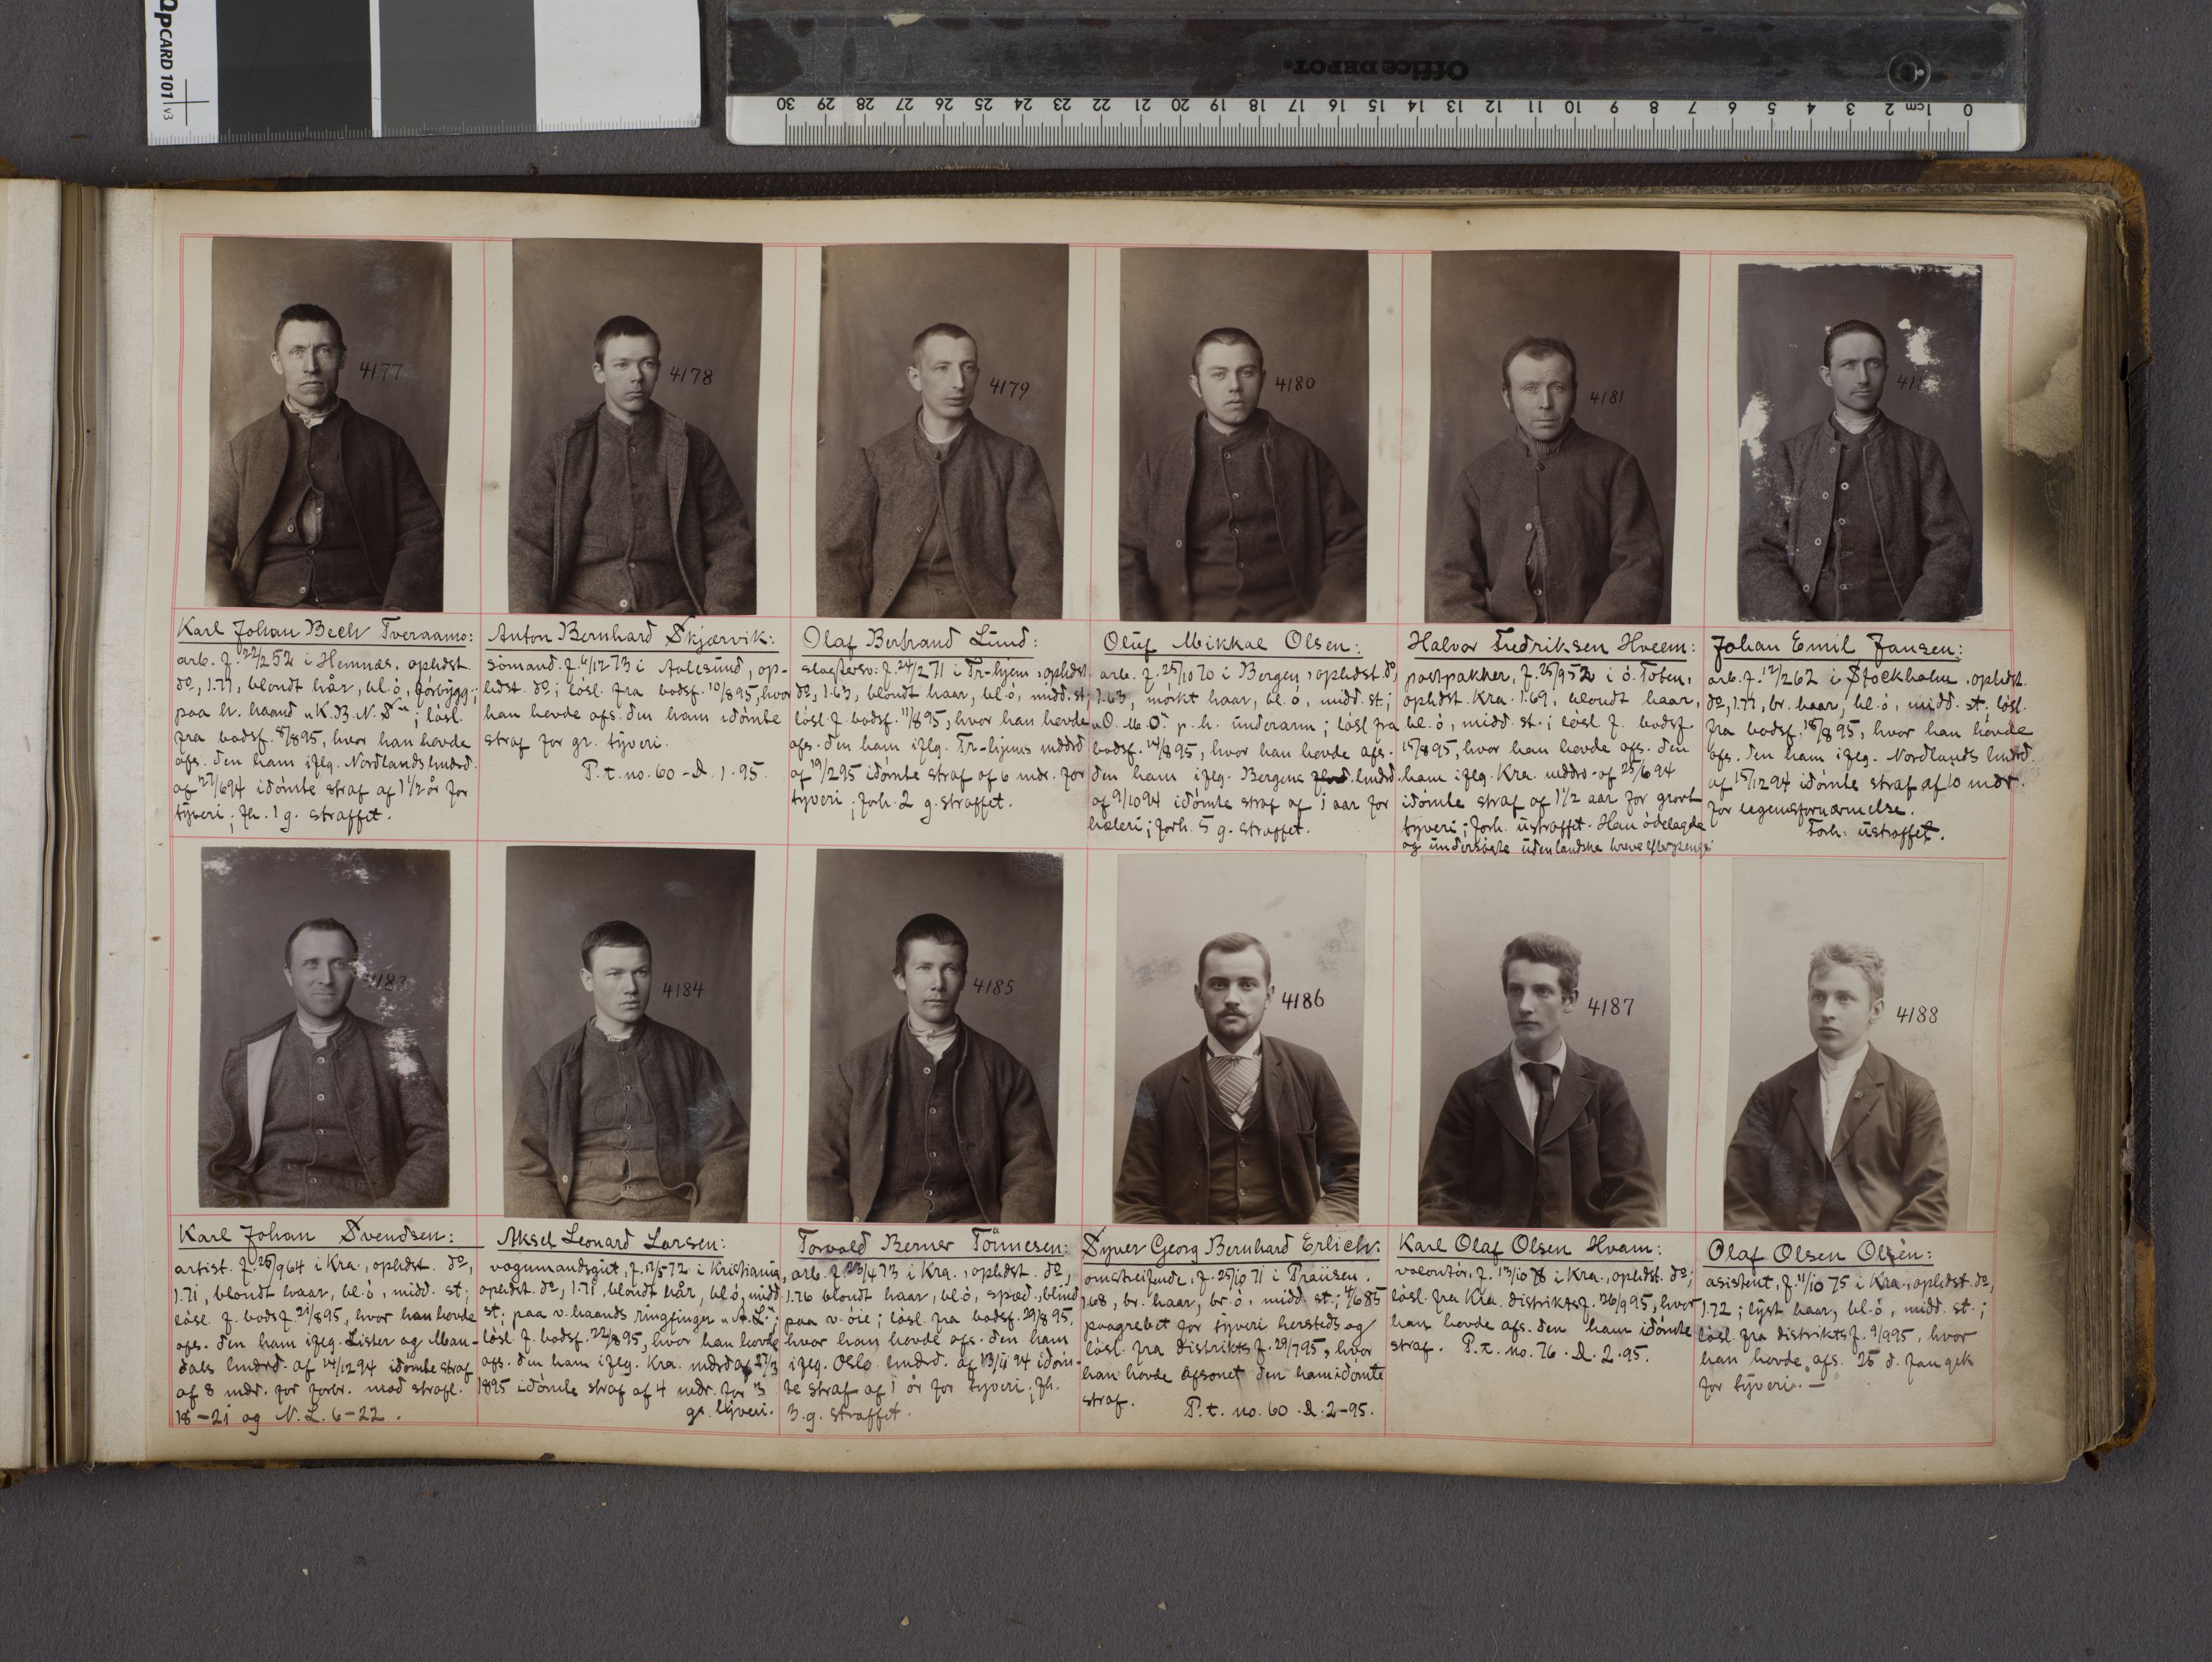 QPCARD 101 v3
Office DEPOT.
0 1 cm 2 3 4 5 6 7 8 9 10 11 12 13 14 15 16 17 18 19 20 21 22 23 24 25 26 27 28 29 30
4177
Karl Johan Bech Tveraamo:
arb. f. 22/2 52 i Hemnæs, opholdst.
do, 1.77, blondt hår, bl. ö, förbygg.;
paa h. haand "K.B.N.S"; lösl.
fra bodsf. 8/8 95, hvor han hovde
afs. den ham iflg. Nordlands lmdrd.
af 27/6 94 idömte straf af 1 1/2 år for
tyveri; fh. 1 g. straffet.
4178
Anton Bernhard Skjærvik:
sömand. f. 6/12 73 i Aalesund, op-
hdst. do; lösl. fra bodsf. 10/8 95, hvor
han hovde afs. den ham idömte
straf for gr. tyveri.
P.t. no. 60 - R. 1. 95.
4179
Olaf Bertrand Lund:
slagtersv. f. 24/2 71 i Tr-hjem, ophdst
do, 1.63, blondt haar, bl. ö, midd. st;
lösl. f. bodsf. 11/8 95, hvor han hovde
afs. den ham iflg. Tr-hjems mddrd
af 19/2 95 idömte straf af 6 mdr. for
tyveri; forh. 2 g. straffet.
4180
Oluf Mikkal Olsen:
arb. f. 25/10 70 i Bergen, ophdst. do,
1.63, mörkt haar, bl. ö, midd. st.;
"O. M. O." p. h. underarm; lösl fra
bodsf. 14/8 95, hvor han hovde afs.
den ham iflg. Bergens lmdrd.
af 9/10 94 idömte straf af 1 aar for
hæleri; forh. 5 g. straffet.
4181
Halvor Fredriksen Hveem:
postpakker, f. 25/9 52 i ö. Toten,
ophdst. Kra. 1.69, blondt haar,
bl. ö, midd. st; lösl f. bodsf.
15/8 95, hvor han hovde afs. den
ham iflg. Kra. mddrd. af 25/6 94
idömte straf af 1 1/2 aar for grovt
tyveri; forh. ustraffet. Han ödelagde
og undersögte udenlandske breve efter penge
418
Johan Emil Jansen:
arb. f. 12/2 62 i Stockholm, ophdst.
do, 1.77, br. haar, bl. ö, midd. st. lösl.
fra bodsf. 18/8 95, hvor han hovde
afs. den ham iflg. Nordlands lmdrd.
af 15/12 94 idömte straf af 10 mdr.
for legemsfornærmelse.
Forh. ustraffet.
4183
Karl Johan Svendsen:
artist. f. 25/9 64 i Kra., ophdst. do,
1.71, blondt haar, bl. ö, midd. st;
lösl. f. bodsf. 21/8 95, hvor han hovde
afs. den ham iflg. Lister og Man-
dals lmdrd. af 14/12 94 idömte straf
af 8 mdr. for forbr. mod strafl.
18-21 og N.L. 6-22.
4184
Aksel Leonard Larsen:
vognmandsgut, f. 17/5 72 i Kristiania,
ophdst. do, 1.71 blondt hår, bl. ö, midd
st; paa v. haands ringfinger "A.L.";
lösl f. bodsf. 22/8 95, hvor han hovde
afs. den ham iflg. Kra. mdrd af 27/3
1895 idömte straf af 4 mdr. for 3
gr. tyveri.
4185
Torvald Berner Tönnesen:
arb. f. 23/4 73 i Kra., ophdst. do,
1.76 blondt haar, bl. ö, spæd, blind
paa v. öie; lösl. fra bodsf. 29/8 95,
hvor han hovde afs. den ham
iflg. Oslo lmdrd. af 13/11 94 idöm-
te straf af 1 år for tyveri; fh.
3 g. straffet.
4186
Syver Georg Bernhard Erlich:
omstreifende, f. 25/10 71 i Praüsen.
1.68, br. haar, br. ö, midd st.; 4/6 85
paagrebet for tyveri hersteds og
lösl. fra distriktsf. 29/7 95, hvor
han hovde afsonet den ham idömte
straf.
P.t. no. 60. R. 2-95.
4187
Karl Olaf Olsen Hvam:
volontör, f. 13/10 78 i Kra., ophdst. do;
lösl. fra Kra. distriktsf. 26/9 95, hvor
han hovde afs. den ham idömte
straf. P.t. no. 76. R. 2. 95.
4188
Olaf Olsen Olsèn:
asistent, f. 11/10 75 i Kra., ophdst. do,
1.72; lyst haar, bl. ö, midd. st.;
lösl fra distriktsf. 9/9 95, hvor
han hovde afs. 25 d. fangsk
for tyveri. —